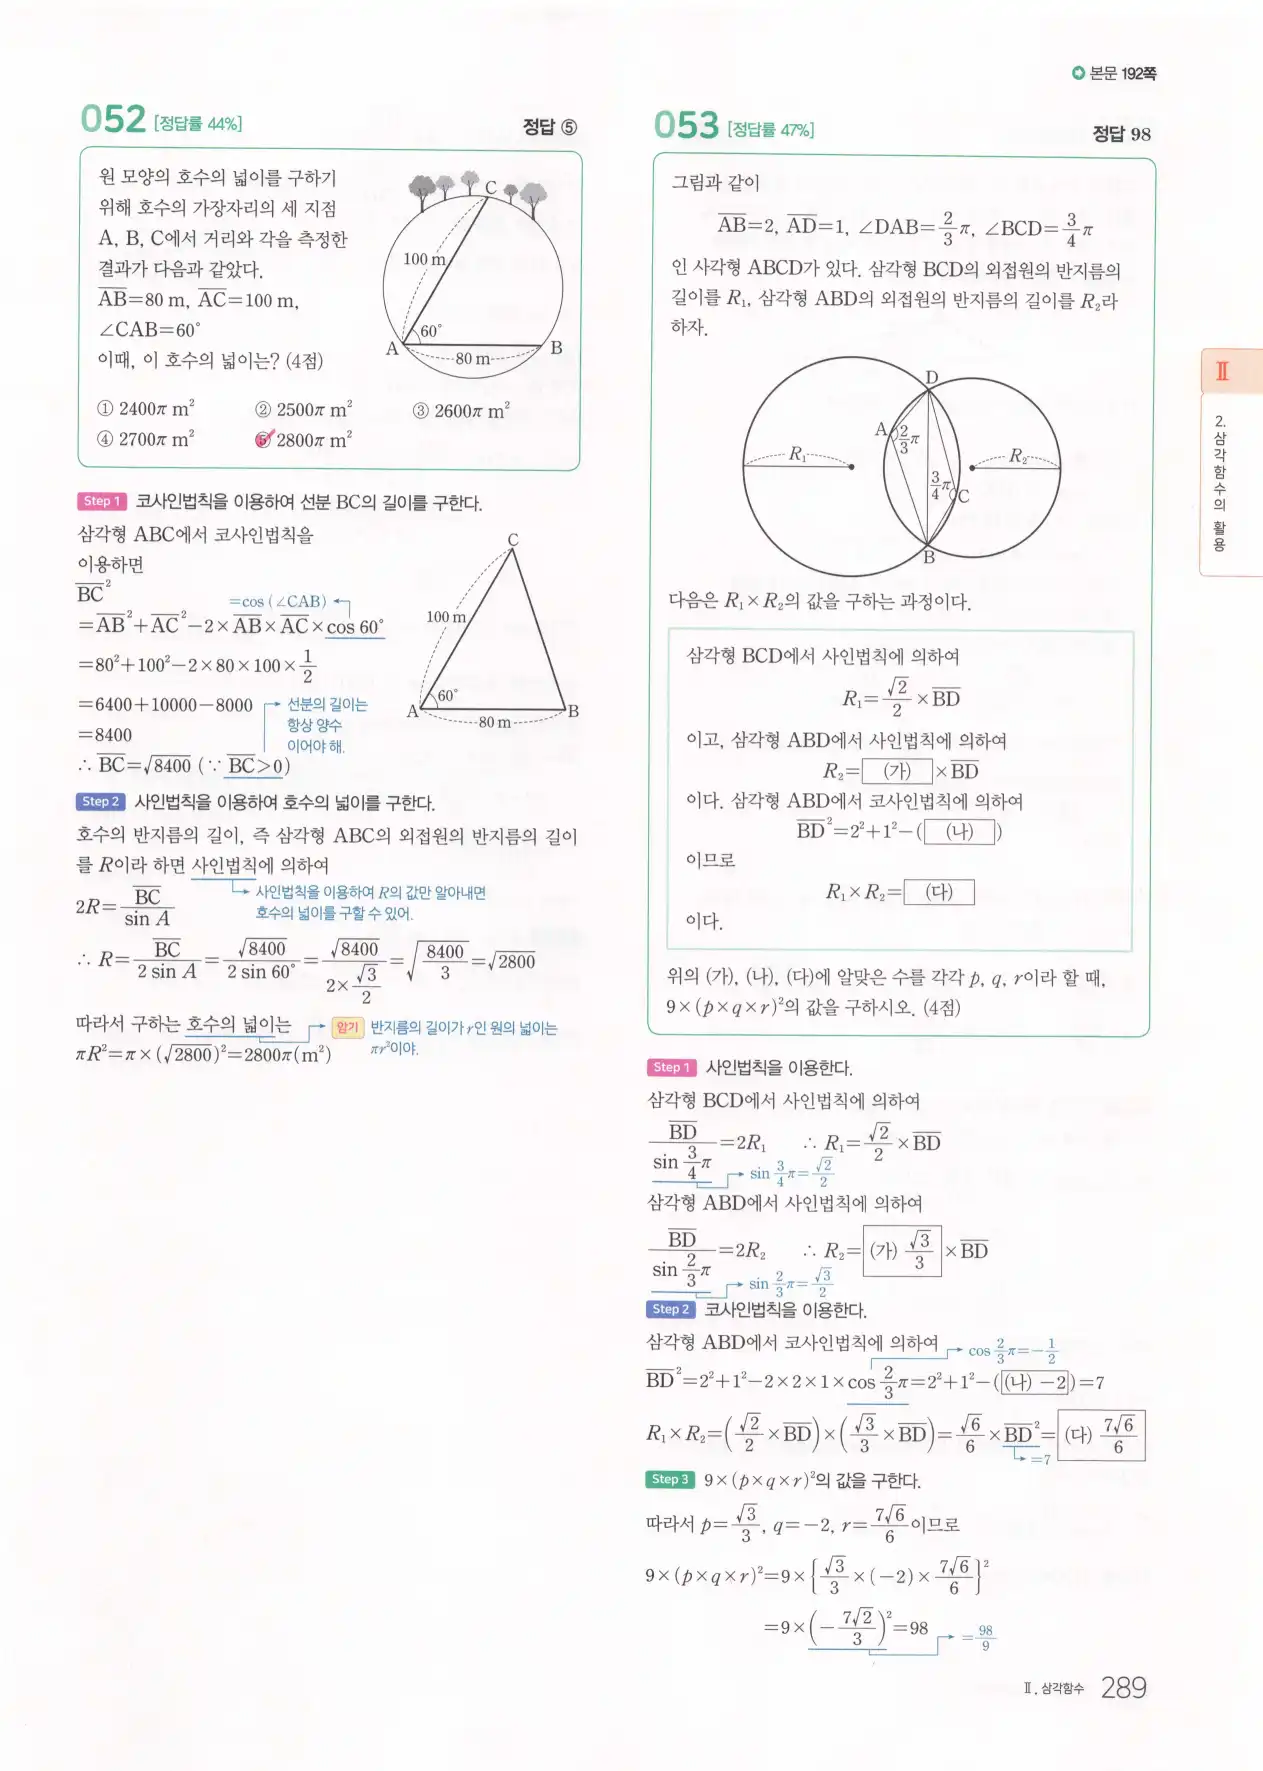 본문 192쪽
052 [정답률 44%]
정답 ⑤
원 모양의 호수의 넓이를 구하기
위해 호수의 가장자리의 세 지점
A, B, C에서 거리와 각을 측정한
결과가 다음과 같았다.
AB=80 m, AC=100 m,
∠CAB=60°
이때, 이 호수의 넓이는? (4점)
C
100 m
60°
A
80 m
B
① 2400π m² ② 2500π m² ③ 2600π m²
④ 2700π m² ⑤ 2800π m²
Step 1 코사인법칙을 이용하여 선분 BC의 길이를 구한다.
삼각형 ABC에서 코사인법칙을
이용하면
BC²
=cos (∠CAB)
=AB²+AC²-2×AB×AC×cos 60°
=80²+100²-2×80×100×1/2
=6400+10000-8000
=8400
선분의 길이는
항상 양수
이어야 해.
∴ BC=√8400 (∵ BC>0)
C
100 m
60°
A
80 m
B
Step 2 사인법칙을 이용하여 호수의 넓이를 구한다.
호수의 반지름의 길이, 즉 삼각형 ABC의 외접원의 반지름의 길이
를 R이라 하면 사인법칙에 의하여
2R=BC/sin A
사인법칙을 이용하여 R의 값만 알아내면
호수의 넓이를 구할 수 있어.
∴ R=BC/2 sin A=√8400/2 sin 60°=√8400/(2×√3/2)=√(8400/3)=√2800
따라서 구하는 호수의 넓이는
암기 반지름의 길이가 r인 원의 넓이는
πr²이야.
πR²=π×(√2800)²=2800π(m²)
053 [정답률 47%]
정답 98
그림과 같이
AB=2, AD=1, ∠DAB=2/3π, ∠BCD=3/4π
인 사각형 ABCD가 있다. 삼각형 BCD의 외접원의 반지름의
길이를 R₁, 삼각형 ABD의 외접원의 반지름의 길이를 R₂라
하자.
D
A
2/3π
R₁
R₂
3/4π
C
B
다음은 R₁×R₂의 값을 구하는 과정이다.
삼각형 BCD에서 사인법칙에 의하여
R₁=√2/2×BD
이고, 삼각형 ABD에서 사인법칙에 의하여
R₂=(가)×BD
이다. 삼각형 ABD에서 코사인법칙에 의하여
BD²=2²+1²-((나))
이므로
R₁×R₂=(다)
이다.
위의 (가), (나), (다)에 알맞은 수를 각각 p, q, r이라 할 때,
9×(p×q×r)²의 값을 구하시오. (4점)
Step 1 사인법칙을 이용한다.
삼각형 BCD에서 사인법칙에 의하여
BD/sin 3/4π=2R₁ ∴ R₁=√2/2×BD
sin 3/4π=√2/2
삼각형 ABD에서 사인법칙에 의하여
BD/sin 2/3π=2R₂ ∴ R₂=(가) √3/3×BD
sin 2/3π=√3/2
Step 2 코사인법칙을 이용한다.
삼각형 ABD에서 코사인법칙에 의하여
cos 2/3π=-1/2
BD²=2²+1²-2×2×1×cos 2/3π=2²+1²-((나) -2)=7
R₁×R₂=(√2/2×BD)×(√3/3×BD)=√6/6×BD²=(다) 7√6/6
=7
Step 3 9×(p×q×r)²의 값을 구한다.
따라서 p=√3/3, q=-2, r=7√6/6이므로
9×(p×q×r)²=9×{√3/3×(-2)×7√6/6}²
=9×(-7√2/3)²=98
=98/9
Ⅱ
2. 삼각함수의 활용
Ⅱ. 삼각함수 289